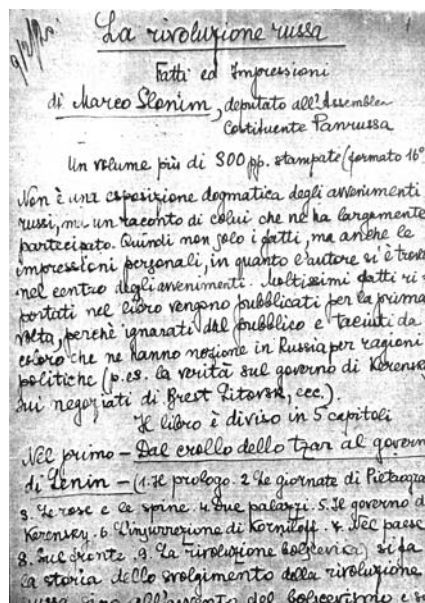 La rivoluzione russa
Fatti ed Impressioni
di Marco Slonim, deputato all'Assemblea
Costituente Panrussa
Un volume più di 300 pp. stampate (formato 16°)
Non è una esposizione dogmatica degli avvenimenti
russi, ma un racconto di colui che ne ha largamente
partecipato. Quindi non solo i fatti, ma anche le
impressioni personali, in quanto l'autore si è trova
nel centro degli avvenimenti. Moltissimi fatti ri-
portati nel libro vengono pubblicati per la prima
volta, perchè ignorati dal pubblico e taciuti da
coloro che ne hanno nozione in Russia per ragioni
politiche (p. es. la verità sul governo di Kerensk
sui negoziati di Brest Litovsk, ecc.).
Il libro è diviso in 5 capitoli
Nel primo - Dal crollo dello tzar al govern
di Lenin - (1. Il prologo. 2 Le giornate di Pietrogra
3. Le rose e le spine. 4. Due palazzi. 5. Il governo d
Kerensky. 6. L'insurrezione di Korniloff. 7. Nel paese
8. Sul fronte. 9. La rivoluzione bolscevica) si fa
la storia dello svolgimento della rivoluzione
russa sino all'avvento del bolscevismo e